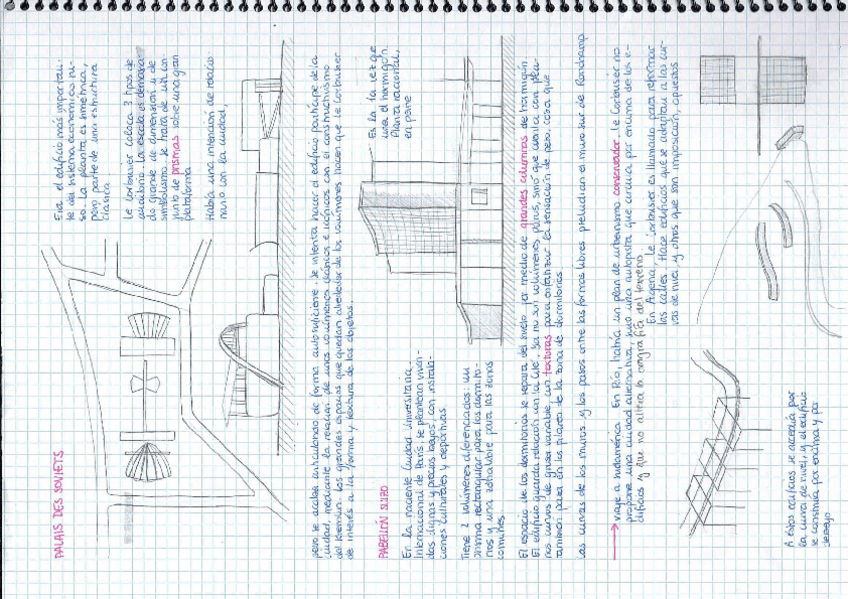 PALAIS DES SOVIETS
Era el edificio más importan-
te del sistema económico ru-
so. La planta es simétrica,
pero parte de una estructura
clásica
Le Corbusier coloca 3 tipos de
auditorio. La escala es demasia-
do grande de dimensión y de
simbolismo. Se trata de un con-
junto de prismas sobre una gran
plataforma
Había una intención de relacio-
narse con la ciudad,
pero se acaba articulando de forma autosuficiente. Se intenta hacer el edificio partícipe de la
ciudad, mediante la relación de unos volúmenes icónicos e icónicos con el constructivismo
del Kremlin. Los grandes espacios que quedan alrededor de los volúmenes hacen que Le Corbusier
de interés a la forma y textura de los objetos.
PABELLÓN SUIZO
En la naciente Ciudad Universitaria
Internacional de París se plantean vivien-
das dignas y precios bajos, con instala-
ciones culturales y deportivas
Tiene 2 volúmenes diferenciados: un
prisma rectangular para los dormito-
rios y una zona libre para las zonas
comunes.
Es la 1a vez que
usa el hormigón.
Planta racional,
en peine
El espacio de los dormitorios se separa del suelo por medio de grandes columnas de hormigón.
El edificio guarda relación con la Cité. Ya no son volúmenes puros, sino que cuenta con
muros curvos de grosor variable, con texturas para enfatizar la sensación de peso, cosa que
también pasa en los pilares de la zona de dormitorios
Las curvas de los muros y los pasos entre las formas libres preludian el muro sur de Ronchamp
→ viaje a Sudamérica. En Río, habría un plan de urbanismo conservador. Le Corbusier no
propone una ciudad alternativa, sino una autopista que circula por encima de los e-
dificios y que no altera la orografía del terreno
En Argelia, Le Corbusier es llamado para reformar
las calles. Hace edificios que se adaptan a las cur-
vas de nivel y otros que son imposición, opuestos
A estos edificios se accedía por
la curva de nivel, y el edificio
se construía por encima y por
debajo